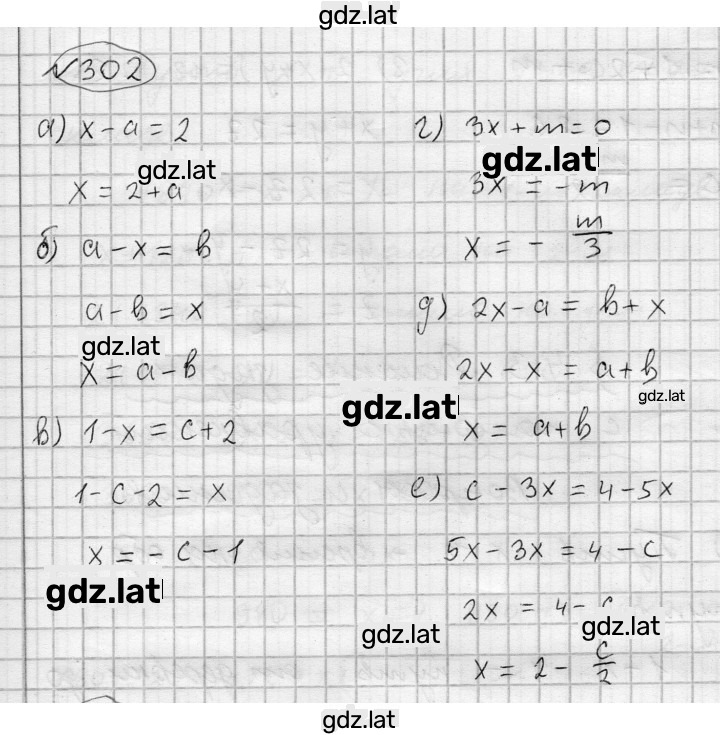 gdz.lat
№302
а) x - a = 2
gdz.lat
x = 2 + a
б) a - x = b
a - b = x
gdz.lat
x = a - b
в) 1 - x = c + 2
1 - c - 2 = x
x = - c - 1
gdz.lat
г) 3x + m = 0
gdz.lat
3x = - m
x = - m/3
д) 2x - a = b + x
2x - x = a + b
gdz.lat
gdz.lat
x = a + b
е) c - 3x = 4 - 5x
5x - 3x = 4 - c
2x = 4 -
gdz.lat
gdz.lat
x = 2 - c/2
gdz.lat